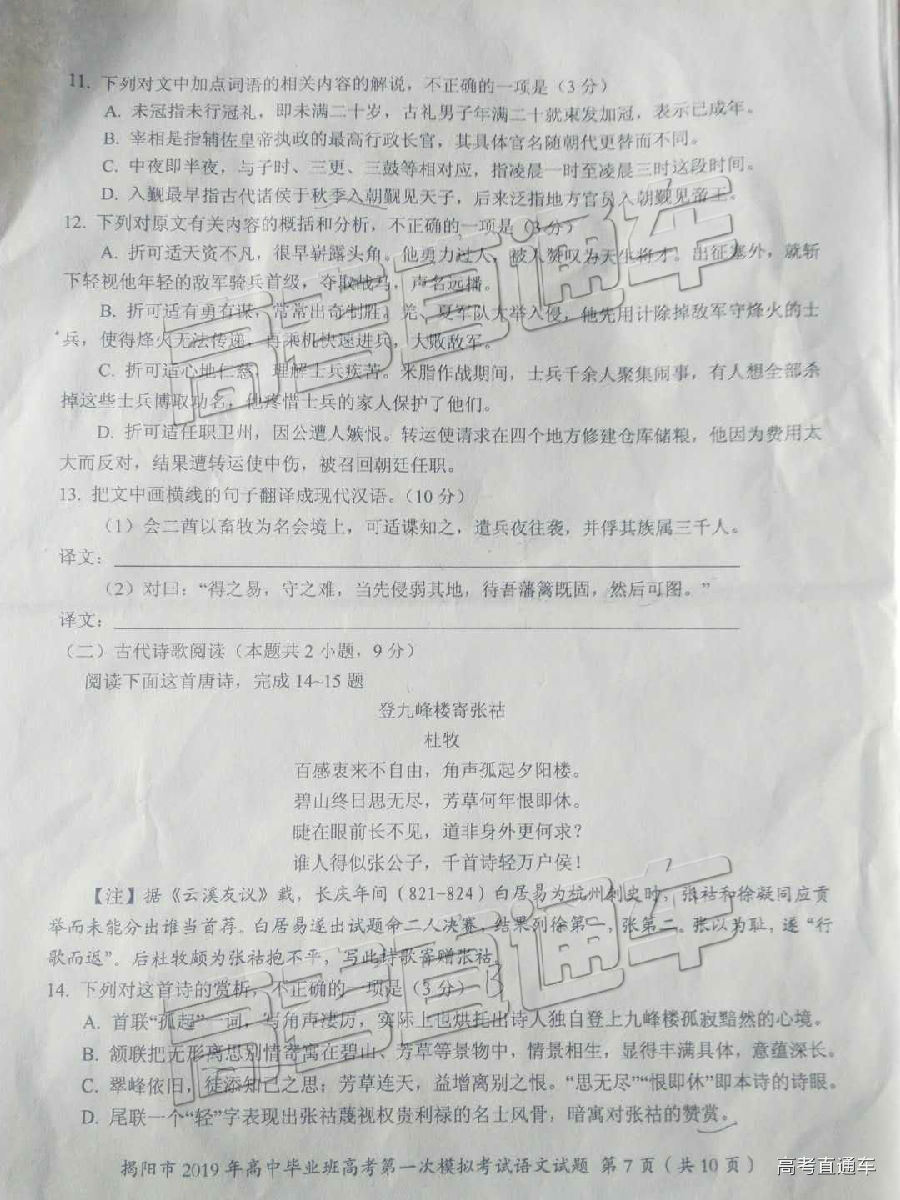 11. 下列对文中加点词语的相关内容的解说，不正确的一项是（3分）
A. 未冠指未行冠礼，即未满二十岁，古礼男子年满二十就束发加冠，表示已成年。
B. 宰相是指辅佐皇帝执政的最高行政长官，其具体官名随朝代更替而不同。
C. 中夜即半夜，与子时、三更、三鼓等相对应，指凌晨一时至凌晨三时这段时间。
D. 入觐最早指古代诸侯于秋季入朝觐见天子，后来泛指地方官员入朝觐见帝王。
12. 下列对原文有关内容的概括和分析，不正确的一项是（3分）
A. 折可适天资不凡，很早崭露头角。他勇力过人，被人赞叹为天生将才。出征塞外，就斩
下轻视他年轻的敌军骑兵首级，夺取战马，声名远播。
B. 折可适有勇有谋，常常出奇制胜。羌、夏军队大举入侵，他先用计除掉敌军守烽火的士
兵，使得烽火无法传递，再乘机快速进兵，大败敌军。
C. 折可适心地仁慈，理解士兵疾苦。米脂作战期间，士兵千余人聚集闹事，有人想全部杀
掉这些士兵博取功名，他疼惜士兵的家人保护了他们。
D. 折可适任职卫州，因公遭人嫉恨。转运使请求在四个地方修建仓库储粮，他因为费用太
大而反对，结果遭转运使中伤，被召回朝廷任职。
13. 把文中画横线的句子翻译成现代汉语。（10分）
（1）会二酋以畜牧为名会境上，可适谍知之，遣兵夜往袭，并俘其族属三千人。
译文：
（2）对曰：“得之易，守之难，当先侵弱其地，待吾藩篱既固，然后可图。”
译文：
（二）古代诗歌阅读（本题共2小题，9分）
阅读下面这首唐诗，完成14~15题
登九峰楼寄张祜
杜牧
百感衷来不自由，角声孤起夕阳楼。
碧山终日思无尽，芳草何年恨即休。
睫在眼前长不见，道非身外更何求？
谁人得似张公子，千首诗轻万户侯！
【注】据《云溪友议》载，长庆年间（821-824）白居易为杭州刺史时，张祜和徐凝同应贡
举而未能分出谁当首荐。白居易遂出试题命二人决赛，结果列徐第一，张第二。张以为耻，遂“行
歌而返”。后杜牧颇为张祜抱不平，写此诗歌寄赠张祜。
14. 下列对这首诗的赏析，不正确的一项是（3分）B
A. 首联“孤起”一词，写角声凄厉，实际上也烘托出诗人独自登上九峰楼孤寂黯然的心境。
B. 颔联把无形离思别情寄寓在碧山、芳草等景物中，情景相生，显得丰满具体，意蕴深长。
C. 翠峰依旧，徒添知己之思；芳草连天，益增离别之恨。“思无尽”“恨即休”即本诗的诗眼。
D. 尾联一个“轻”字表现出张祜蔑视权贵利禄的名士风骨，暗寓对张祜的赞赏。
揭阳市2019年高中毕业班高考第一次模拟考试语文试题 第7页（共10页）
高考直通车
高考直通车
高考直通车